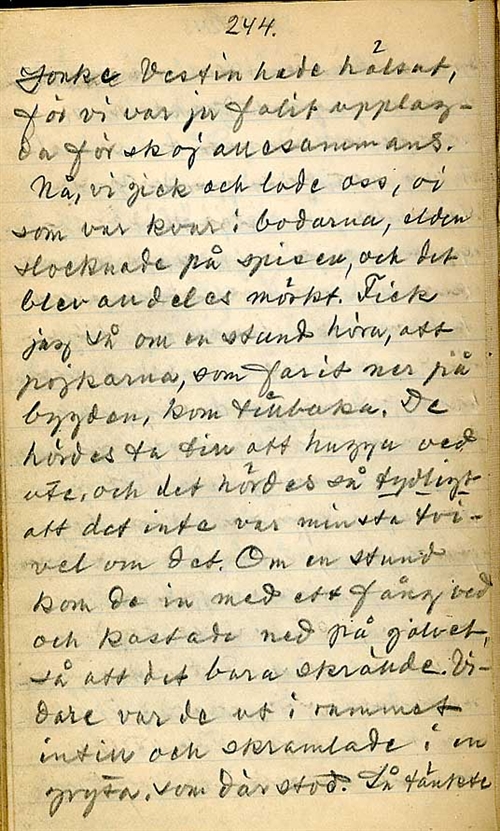 244.
Jonke Vestin hade hälsat,
för vi var ju falit upplag-
da för skoj allesammans.
Nå, vi gick och lade oss, vi
som var kvar i bodarna, elden
slocknade på spisen, och det
blev alldeles mörkt. Fick
jag så om en stund höra, att
pojkarna, som farit ner på
bygden, kom tillbaka. De
hördes ta till att hugga ved
ute, och det hördes så tydligt
att det inte var minsta tvi-
vel om det. Om en stund
kom de in med ett fång ved
och kastade ned på golvet,
så att det bara skrällde. Vi-
dare var de ut i rummet
intill och skramlade i en
gryta, som där stod. Så tänkte